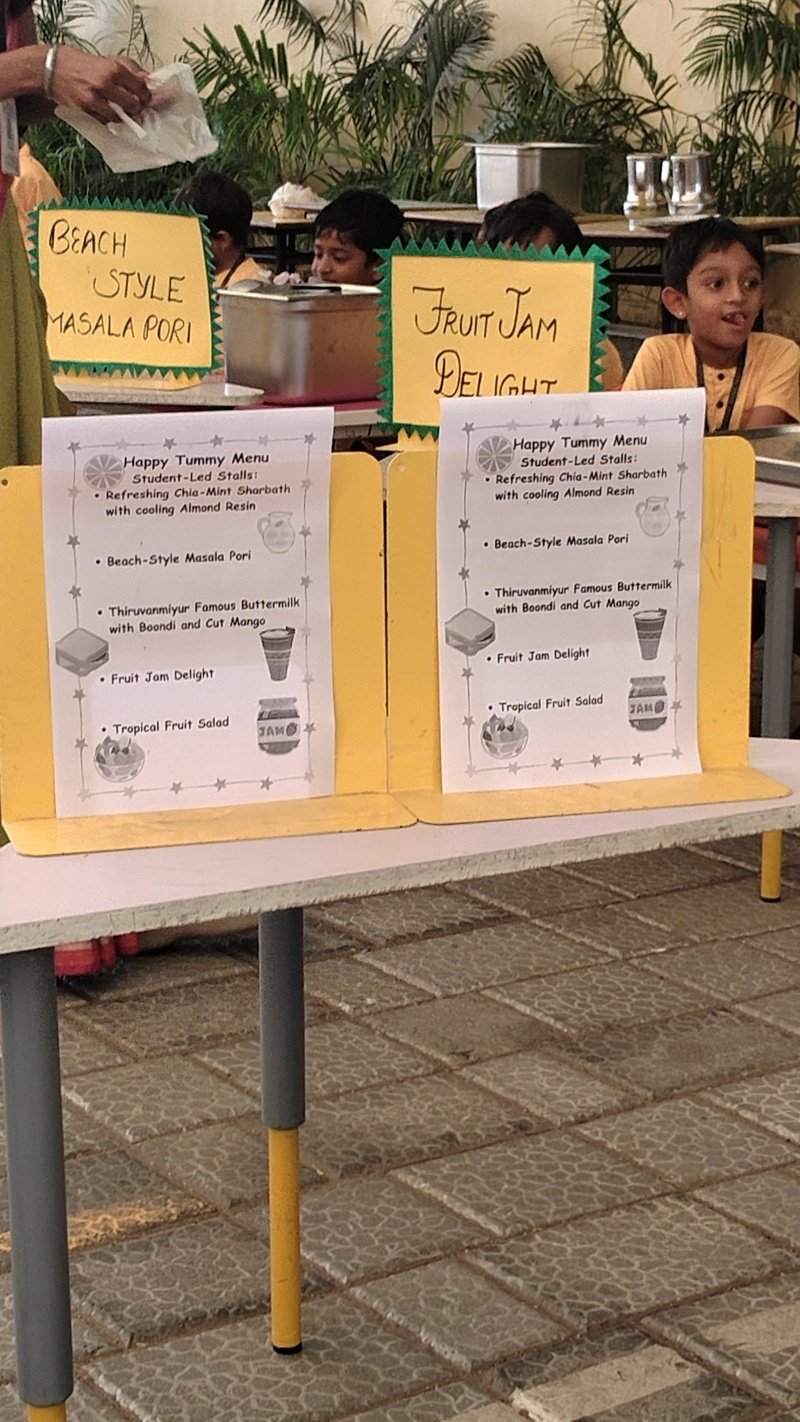 BEACH
STYLE
MASALA PORI
FRUIT JAM
DELIGHT
Happy Tummy Menu
Student-Led Stalls:
• Refreshing Chia-Mint Sharbath
with cooling Almond Resin
• Beach-Style Masala Pori
• Thiruvanmiyur Famous Buttermilk
with Boondi and Cut Mango
• Fruit Jam Delight
• Tropical Fruit Salad
JAM
Happy Tummy Menu
Student-Led Stalls:
• Refreshing Chia-Mint Sharbath
with cooling Almond Resin
• Beach-Style Masala Pori
• Thiruvanmiyur Famous Buttermilk
with Boondi and Cut Mango
• Fruit Jam Delight
• Tropical Fruit Salad
JAM